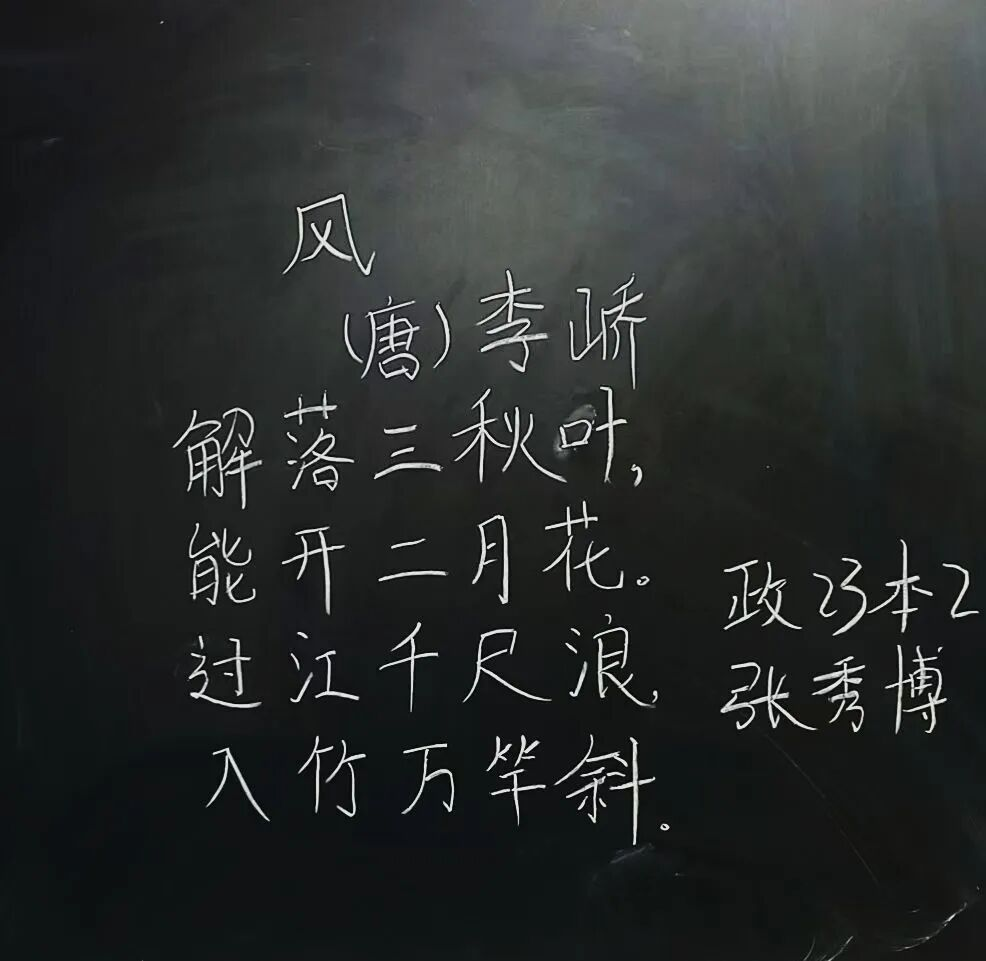 风
(唐)李峤
解落三秋叶,
能开二月花。
过江千尺浪,
入竹万竿斜。
政23本2
张秀博